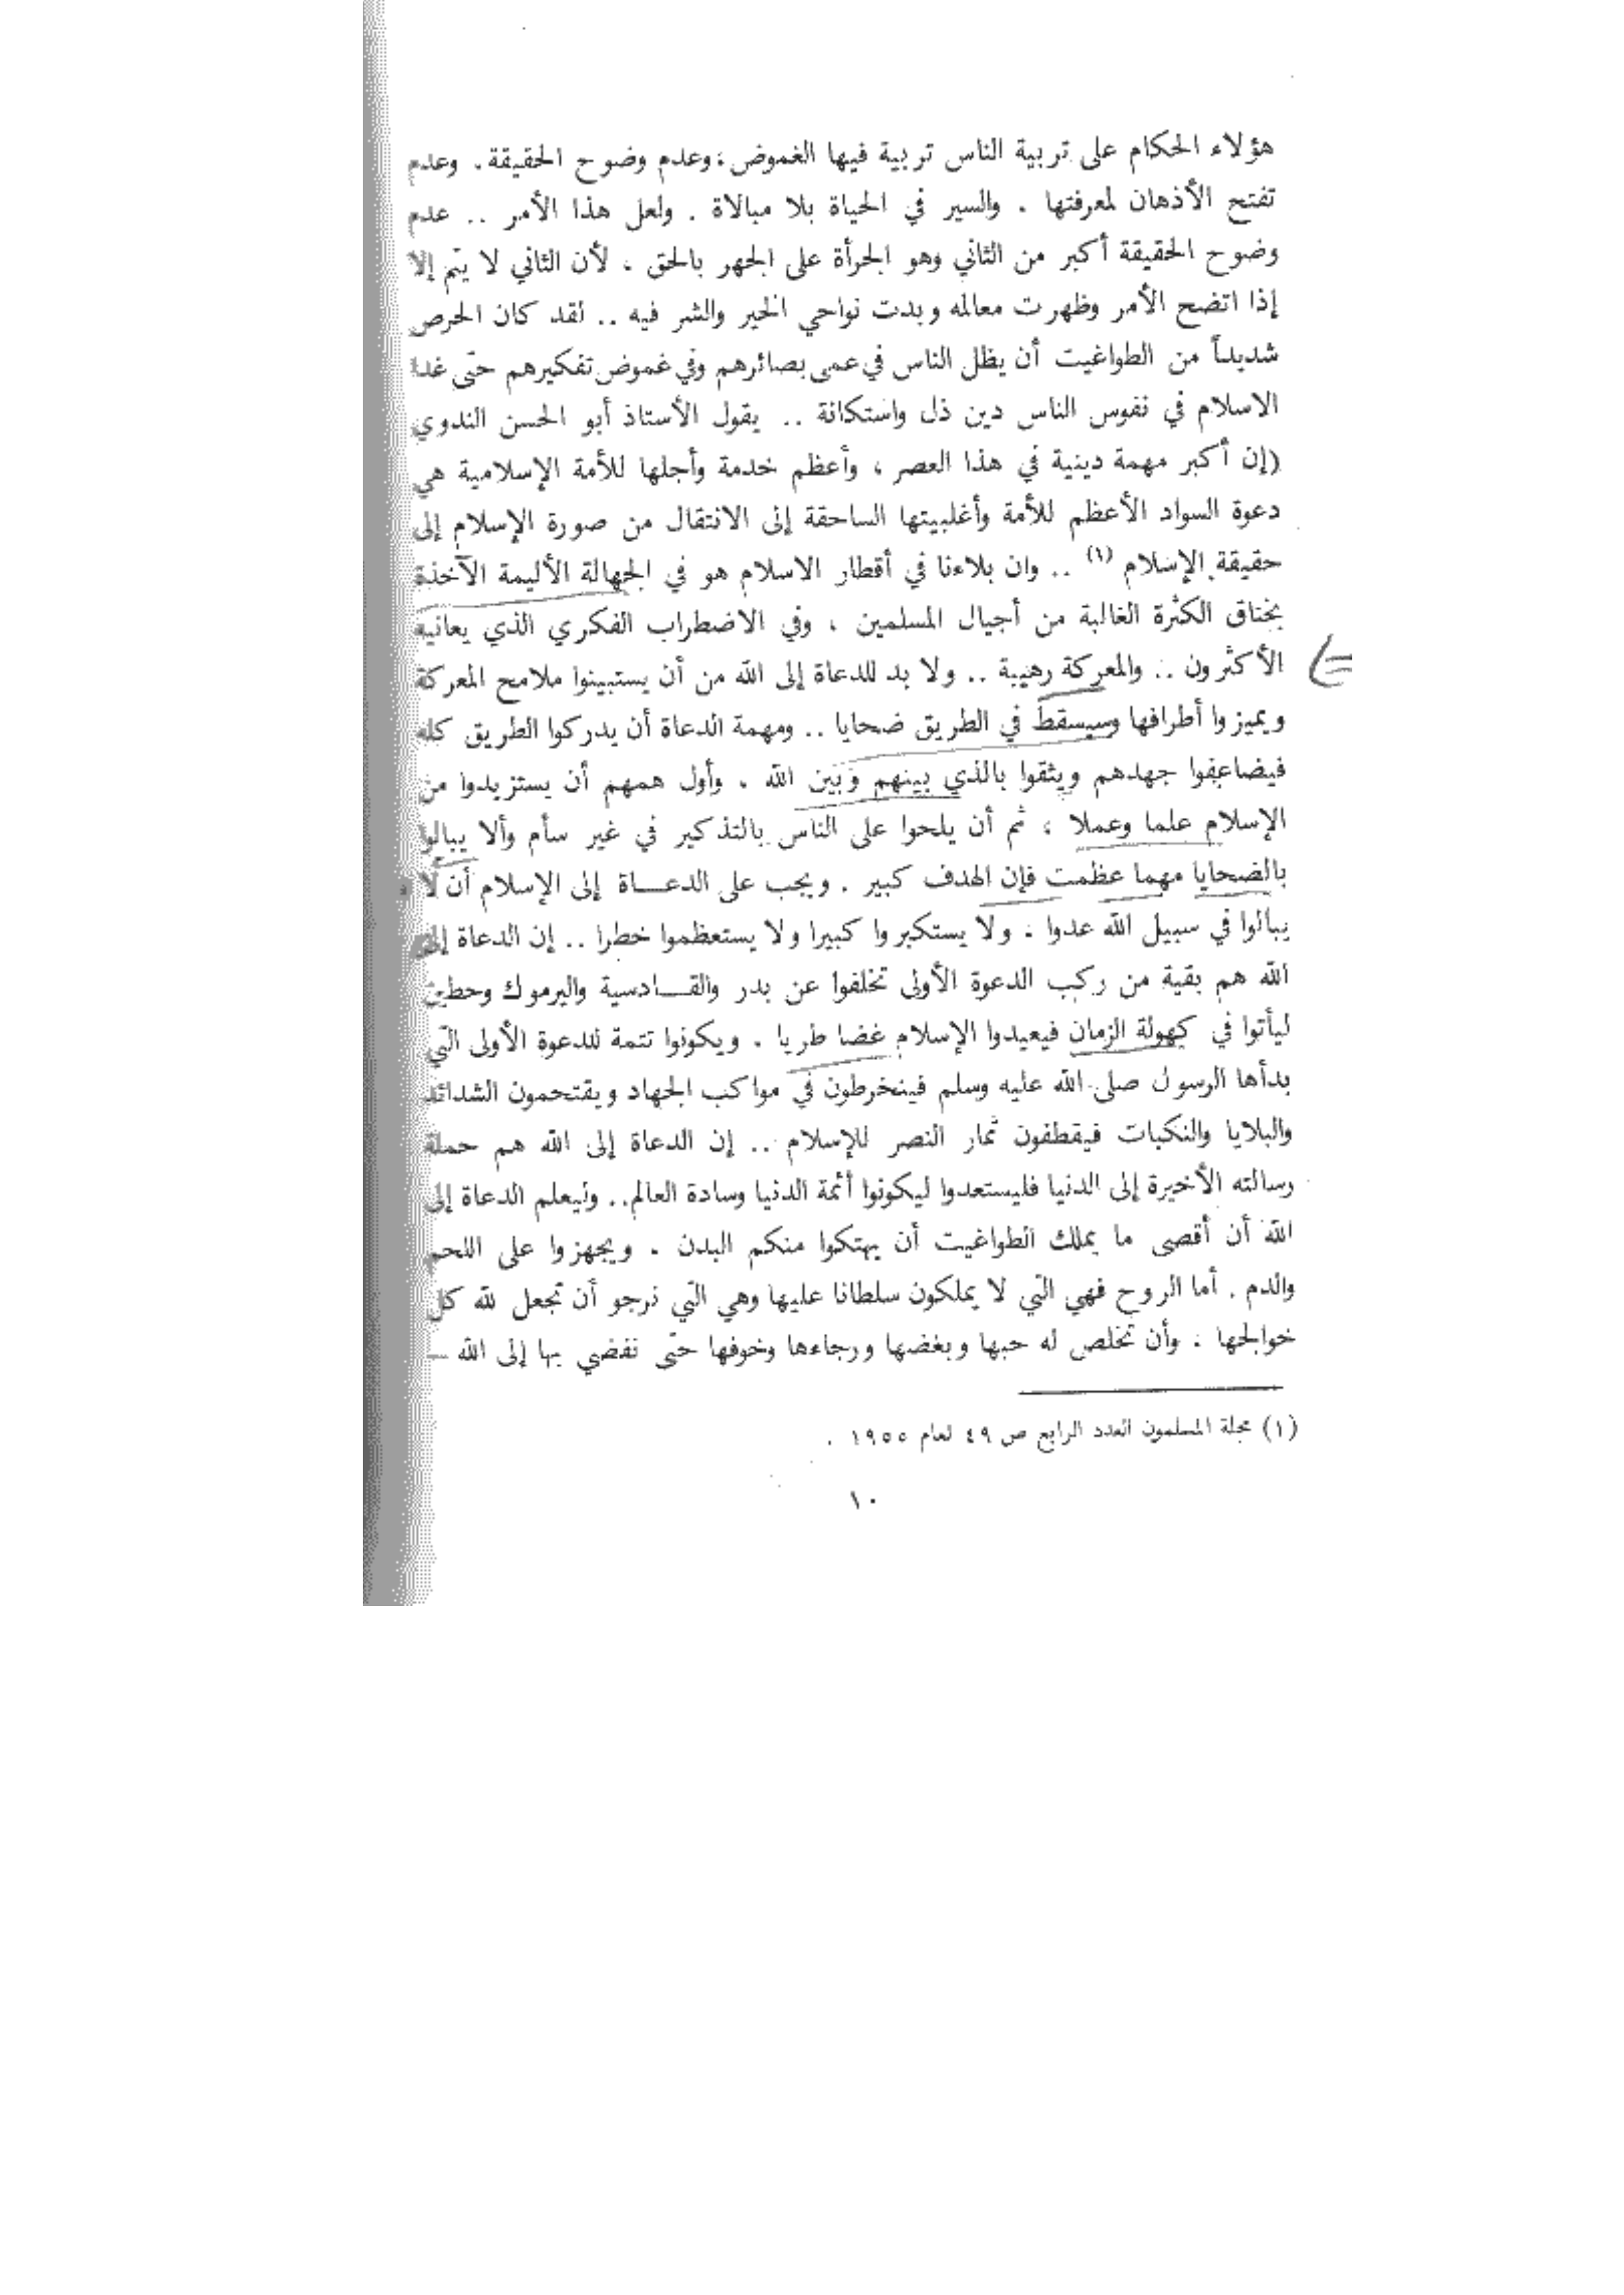 هؤلاء الحكام على تربية الناس تربية فيها الغموض ، وعدم وضوح الحقيقة . وعدم
تفتح الأذهان لمعرفتها . والسير في الحياة بلا مبالاة . ولعل هذا الأمر .. عدم
وضوح الحقيقة أكبر من الثاني وهو الجرأة على الجهر بالحق ، لأن الثاني لا يتم إلا
إذا اتضح الأمر وظهرت معالمه وبدت نواحي الخير والشر فيه .. لقد كان الحرص
شديداً من الطواغيت أن يظل الناس في عمى بصائرهم وفي غموض تفكيرهم حتى غدا
الاسلام في نفوس الناس دين ذل واستكانة .. يقول الأستاذ أبو الحسن الندوي
(إن أكبر مهمة دينية في هذا العصر ، وأعظم خدمة وأجلها للأمة الإسلامية هي
دعوة السواد الأعظم للأمة وأغلبيتها الساحقة إلى الانتقال من صورة الإسلام إلى
حقيقة الإسلام (١) .. وان بلاءنا في أقطار الاسلام هو في الجهالة الأليمة الآخذة
بخناق الكثرة الغالبة من أجيال المسلمين ، وفي الاضطراب الفكري الذي يعانيه
الأكثرون .. والمعركة رهيبة .. ولا بد للدعاة إلى الله من أن يستبينوا ملامح المعركة
ويميزوا أطرافها وسيسقط في الطريق ضحايا .. ومهمة الدعاة أن يدركوا الطريق كله
فيضاعفوا جهدهم ويثقوا بالذي بينهم وبين الله . وأول همهم أن يستزيدوا من
الإسلام علما وعملا ، ثم أن يلحوا على الناس بالتذكير في غير سأم وألا يبالوا
بالضحايا مهما عظمت فإن الهدف كبير . ويجب على الدعـــاة إلى الإسلام أن لا
يبالوا في سبيل الله عدوا . ولا يستكبروا كبيرا ولا يستعظموا خطرا .. إن الدعاة إلى
الله هم بقية من ركب الدعوة الأولى تخلفوا عن بدر والقـــادسية واليرموك وحطين
ليأتوا في كهولة الزمان فيعيدوا الإسلام غضا طريا . ويكونوا تتمة للدعوة الأولى التي
بدأها الرسول صلى الله عليه وسلم فينخرطون في مواكب الجهاد ويقتحمون الشدائد
والبلايا والنكبات فيقطفون ثمار النصر للإسلام .. إن الدعاة إلى الله هم حملة
رسالته الأخيرة إلى الدنيا فليستعدوا ليكونوا أئمة الدنيا وسادة العالم .. وليعلم الدعاة إلى
الله أن أقصى ما يملك الطواغيت أن يهتكوا منكم البدن . ويجهزوا على اللحم
والدم . أما الروح فهي التي لا يملكون سلطانا عليها وهي التي نرجو أن تجعل لله كل
خوالجها . وأن تخلص له حبها وبغضها ورجاءها وخوفها حتى نفضي بها إلى الله —
(١) مجلة المسلمون العدد الرابع ص ٤٩ لعام ١٩٥٥ .
١٠